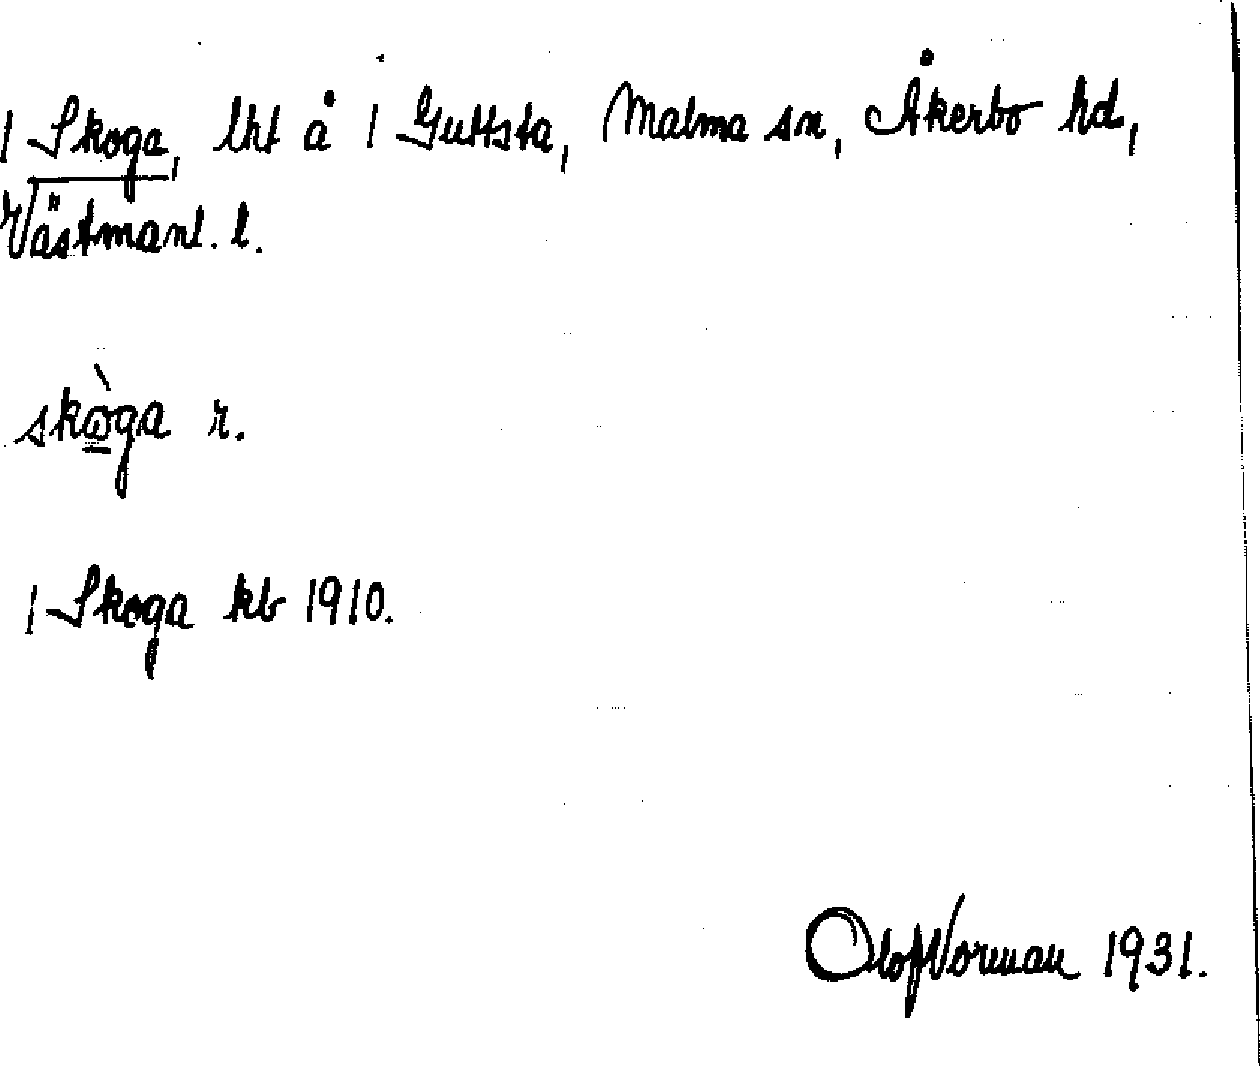 1 Skoga, lht å 1 Guttsta, Malma sn, Åkerbo hd,
Västmanl. l.
skò̲ga r.
1 Skoga kb 1910.
Olof Norman 1931.